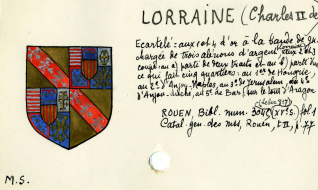 LORRAINE (Charles II de
Ecartelé: aux 1 et 4 d'or à la bande de gu.
chargée de trois alérions d'argent
coupé: au a) parti de deux traits et au b) parti d'un
ce qui fait cinq quartiers: au 1er de Hongrie,
au 2e d'Anjou-Naples, au 3e de Jérusalem, au 4e
d'Anjou duché, au 5e de Bar, sur le tout d'Aragon
ROUEN, Bibl. mun. (XVe s. fol. 1
Catal. gén. des mss, Rouen, t. II, p. 77
M.S.